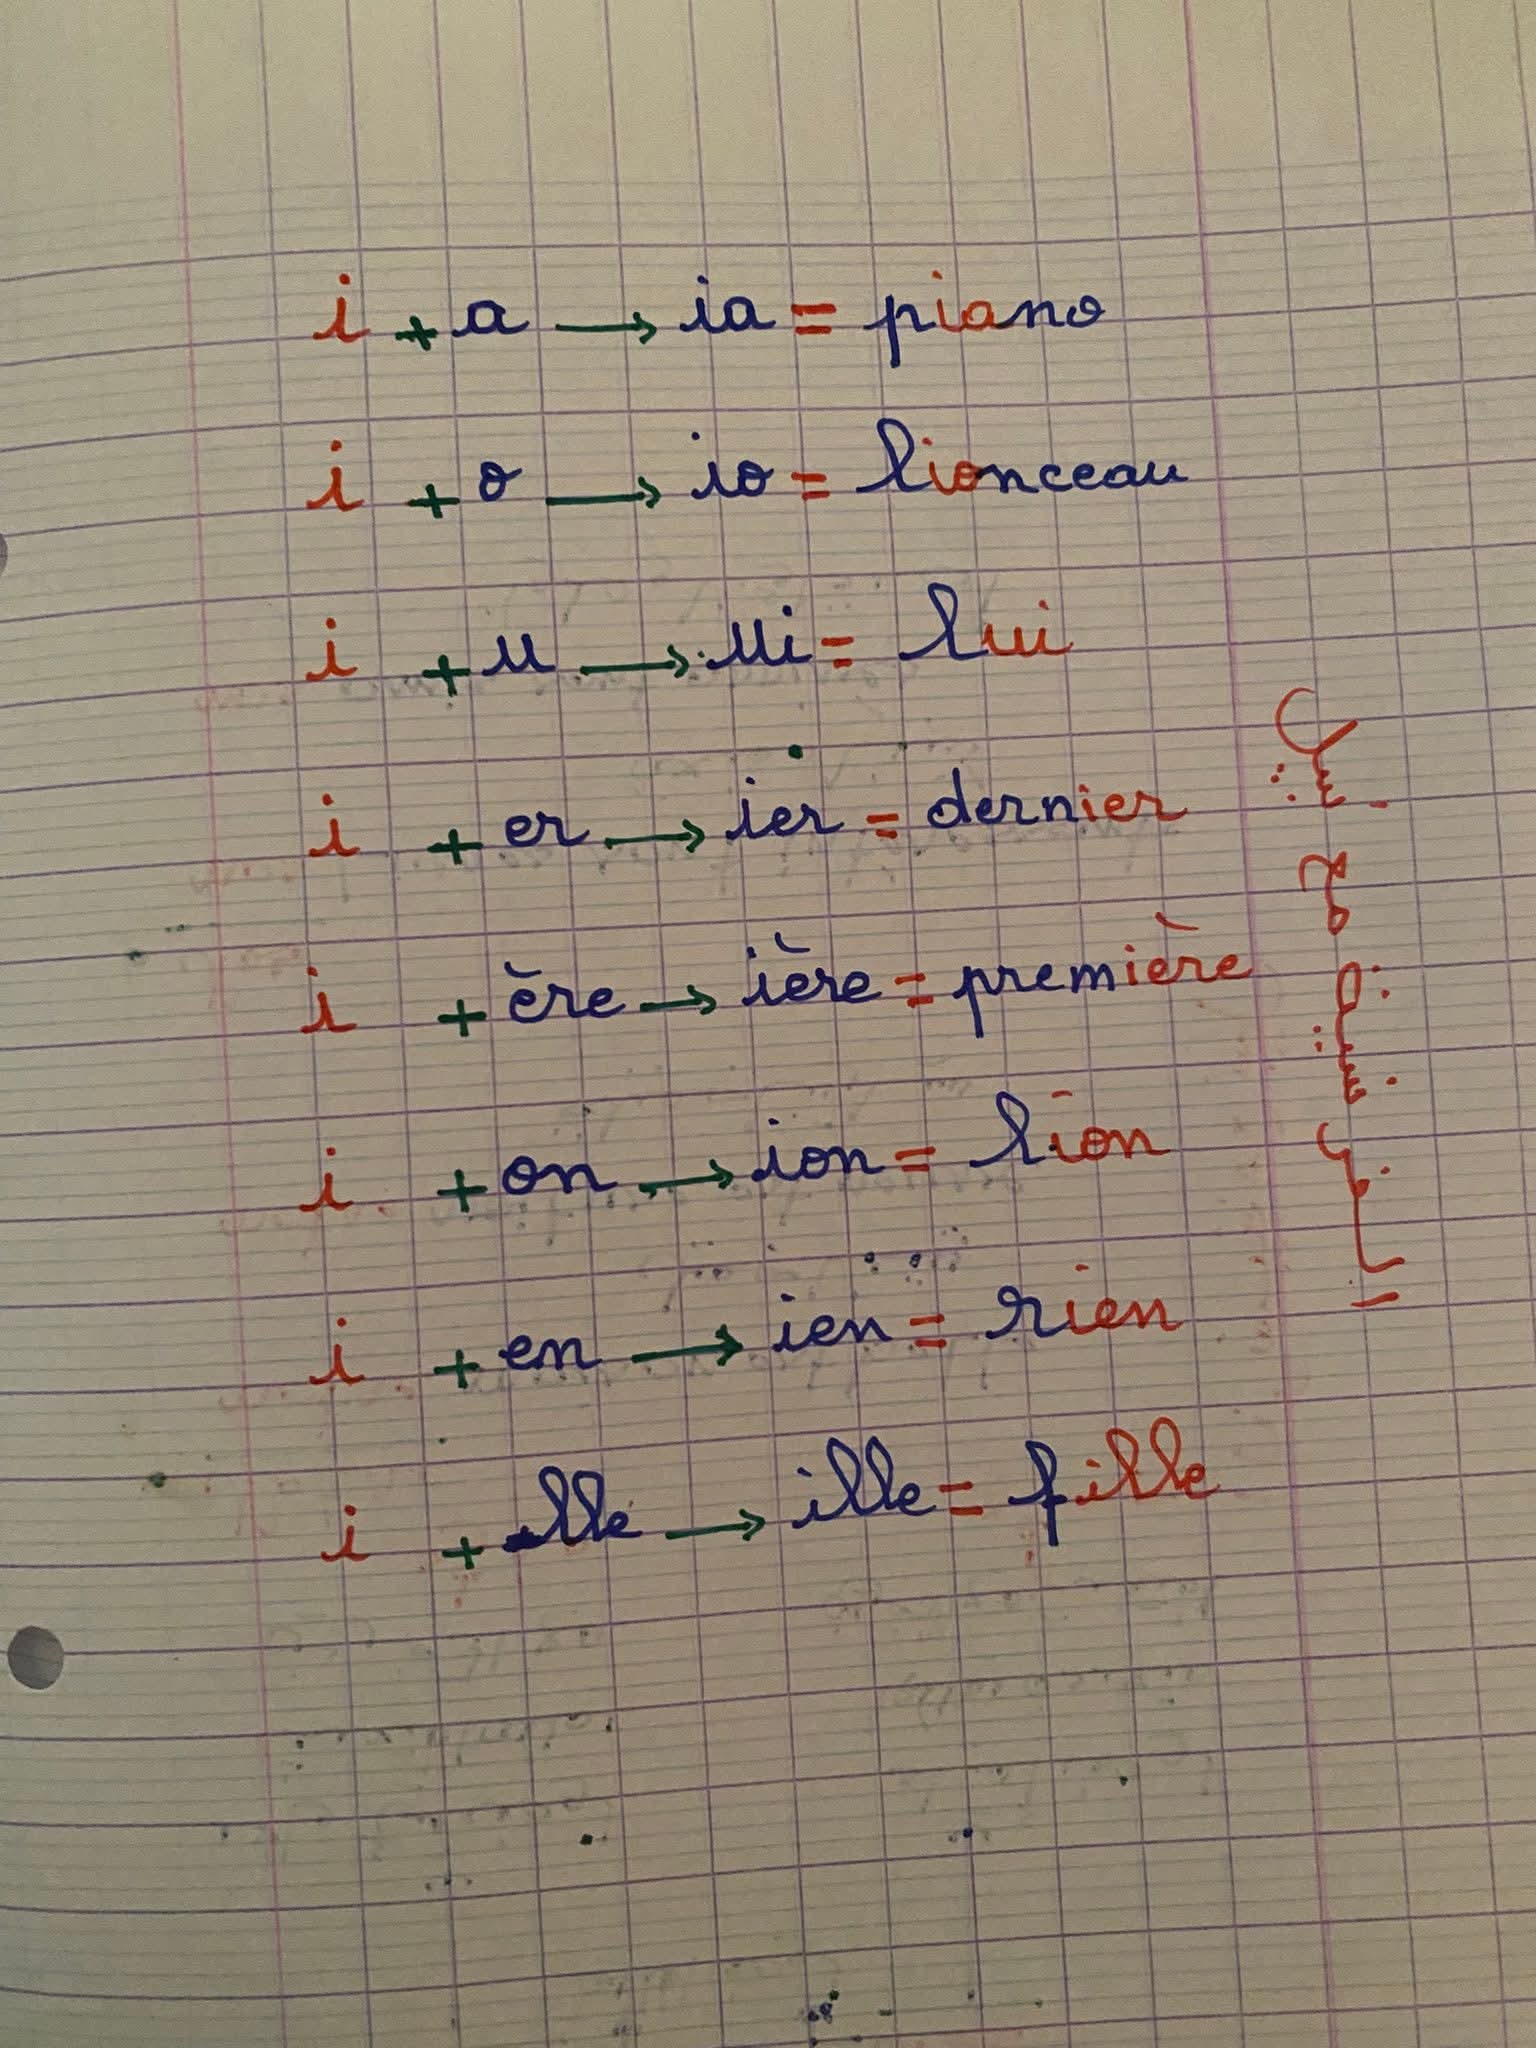 i + a → ia = piano
i + o → io = lionceau
i + u → ui = lui
i + er → ier = dernier
i + ère → ière = première
i + on → ion = lion
i + en → ien = rien
i + lle → ille = fille